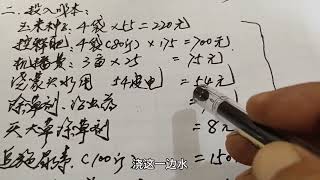 二. 投入成本:
玉米种: 4袋 × 55 = 220元
控释肥: 4袋 (80斤) × 175 = 700元
机播费: 3亩 × 25 = 75元
浇蒙头水用 54度电 = 54元
除草剂.治虫药 =
灭大草除草剂 = 8元
追施尿素 (100斤 = 150
浇这一边水